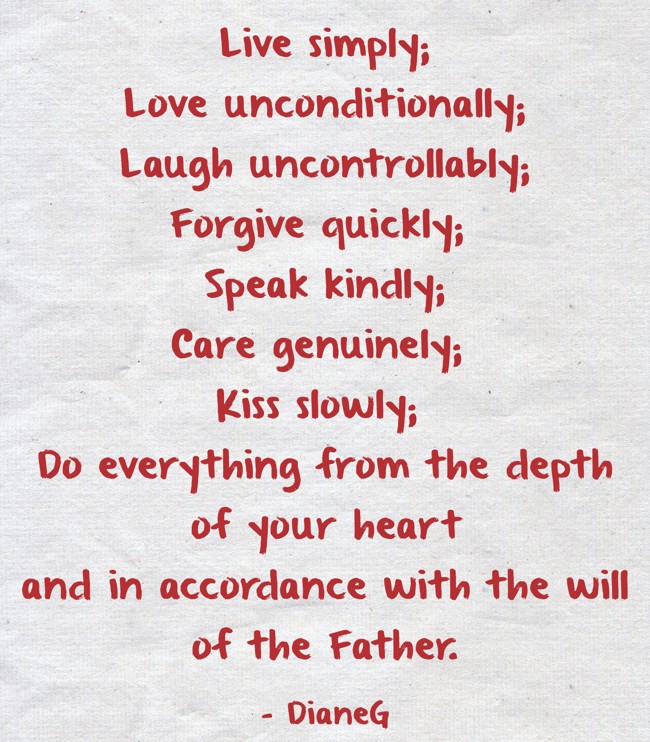 Live simply;
Love unconditionally;
Laugh uncontrollably;
Forgive quickly;
Speak kindly;
Care genuinely;
Kiss slowly;
Do everything from the depth
of your heart
and in accordance with the will
of the Father.
- DianeG